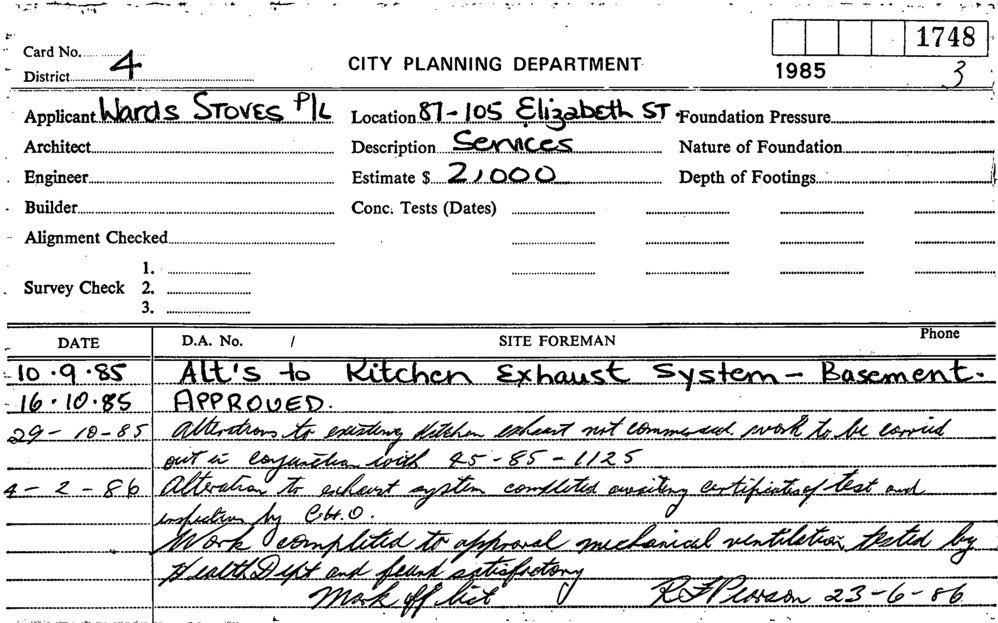 Card No. 4
District
CITY PLANNING DEPARTMENT
1748
1985
3
Applicant Wards Stoves P/L
Location 87-105 Elizabeth ST
Foundation Pressure
Architect
Description Services
Nature of Foundation
Engineer
Estimate $ 2,000
Depth of Footings
Builder
Conc. Tests (Dates)
Alignment Checked
1.
Survey Check 2.
3.
DATE D.A. No. / SITE FOREMAN Phone
10.9.85 Alt's to Kitchen Exhaust System - Basement.
16.10.85 APPROVED.
29-10-85 Alterations to existing kitchen exhaust not commenced work to be carried
out in conjunction with 45-85-1125
4-2-86 Alteration to exhaust system completed awaiting certificates of test and
inspection by C.H.O.
Work completed to approval mechanical ventilation tested by
Health Dept and found satisfactory
Mark off list R F Pearson 23-6-86